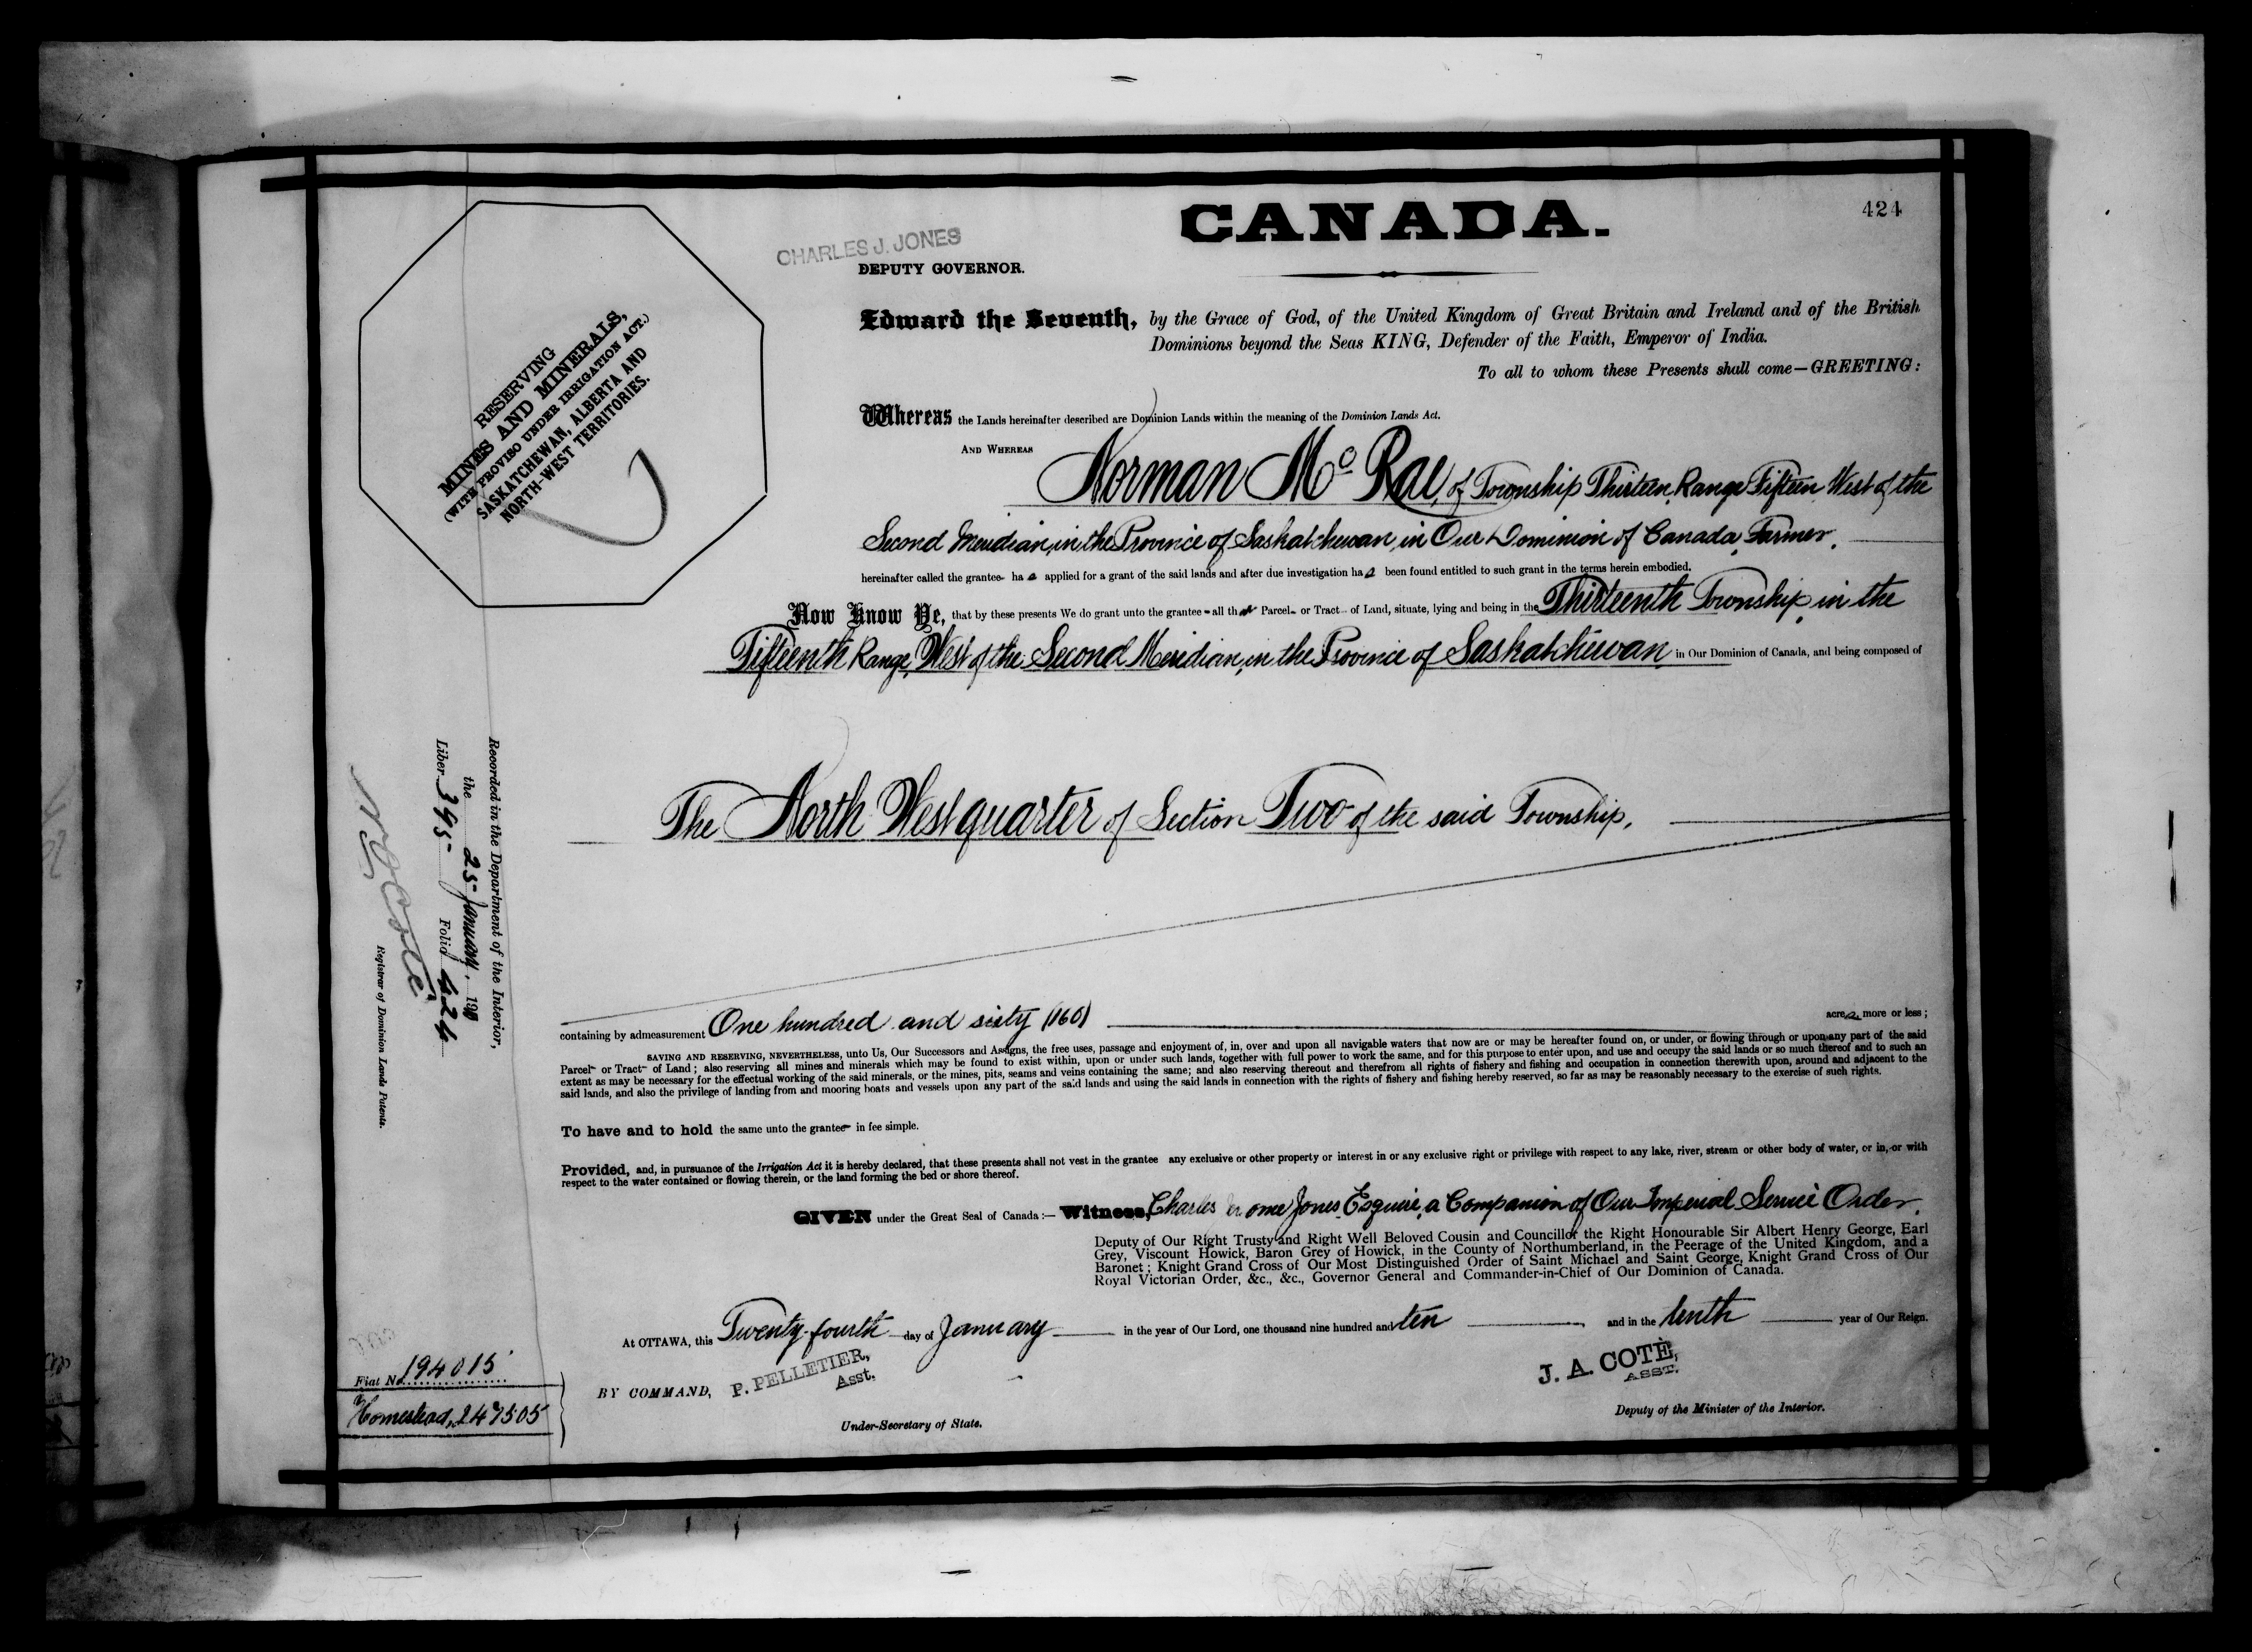 424
CANADA.
CHARLES J. JONES
DEPUTY GOVERNOR.
Edward the Seventh, by the Grace of God, of the United Kingdom of Great Britain and Ireland and of the British
Dominions beyond the Seas KING, Defender of the Faith, Emperor of India.
To all to whom these Presents shall come—GREETING:
RESERVING
MINES AND MINERALS,
(WITH PROVISO UNDER IRRIGATION ACT.)
SASKATCHEWAN, ALBERTA AND
NORTH-WEST TERRITORIES.
Whereas the Lands hereinafter described are Dominion Lands within the meaning of the Dominion Lands Act.
AND WHEREAS Norman McRae, of Township Thirteen, Range Fifteen, West of the
Second Meridian, in the Province of Saskatchewan, in Our Dominion of Canada, Farmer,
hereinafter called the grantee has applied for a grant of the said lands and after due investigation has been found entitled to such grant in the terms herein embodied.
Now Know Ye, that by these presents We do grant unto the grantee all that Parcel or Tract of Land, situate, lying and being in the Thirteenth Township, in the
Fifteenth Range, West of the Second Meridian, in the Province of Saskatchewan in Our Dominion of Canada, and being composed of
The North West quarter of Section Two of the said Township,
containing by admeasurement One hundred and sixty (160) acres, more or less;
SAVING AND RESERVING, NEVERTHELESS, unto Us, Our Successors and Assigns, the free uses, passage and enjoyment of, in, over and upon all navigable waters that now are or may be hereafter found on, or under, or flowing through or upon any part of the said
Parcel or Tract of Land; also reserving all mines and minerals which may be found to exist within, upon or under such lands, together with full power to work the same, and for this purpose to enter upon, and use and occupy the said lands or so much thereof and to such an
extent as may be necessary for the effectual working of the said minerals, or the mines, pits, seams and veins containing the same; and also reserving thereout and therefrom all rights of fishery and fishing and occupation in connection therewith upon, around and adjacent to the
said lands, and also the privilege of landing from and mooring boats and vessels upon any part of the said lands and using the said lands in connection with the rights of fishery and fishing hereby reserved, so far as may be reasonably necessary to the exercise of such rights.
To have and to hold the same unto the grantee in fee simple.
Provided, and, in pursuance of the Irrigation Act it is hereby declared, that these presents shall not vest in the grantee any exclusive or other property or interest in or any exclusive right or privilege with respect to any lake, river, stream or other body of water, or in, or with
respect to the water contained or flowing therein, or the land forming the bed or shore thereof.
GIVEN under the Great Seal of Canada:— Witness, Charles Jones, Esquire, a Companion of Our Imperial Service Order,
Deputy of Our Right Trusty and Right Well Beloved Cousin and Councillor the Right Honourable Sir Albert Henry George, Earl
Grey, Viscount Howick, Baron Grey of Howick, in the County of Northumberland, in the Peerage of the United Kingdom, and a
Baronet; Knight Grand Cross of Our Most Distinguished Order of Saint Michael and Saint George, Knight Grand Cross of Our
Royal Victorian Order, &c., &c., Governor General and Commander-in-Chief of Our Dominion of Canada.
At OTTAWA, this Twenty-fourth day of January in the year of Our Lord, one thousand nine hundred and ten and in the tenth year of Our Reign.
BY COMMAND, P. PELLETIER,
Asst.
Under-Secretary of State.
J. A. COTÈ,
ASST.
Deputy of the Minister of the Interior.
Recorded in the Department of the Interior,
the 25 January, 1910
Liber 395 Folio 424
N. O. Coté
Registrar of Dominion Lands Patents.
Fiat No. 194015
Homestead, 247505